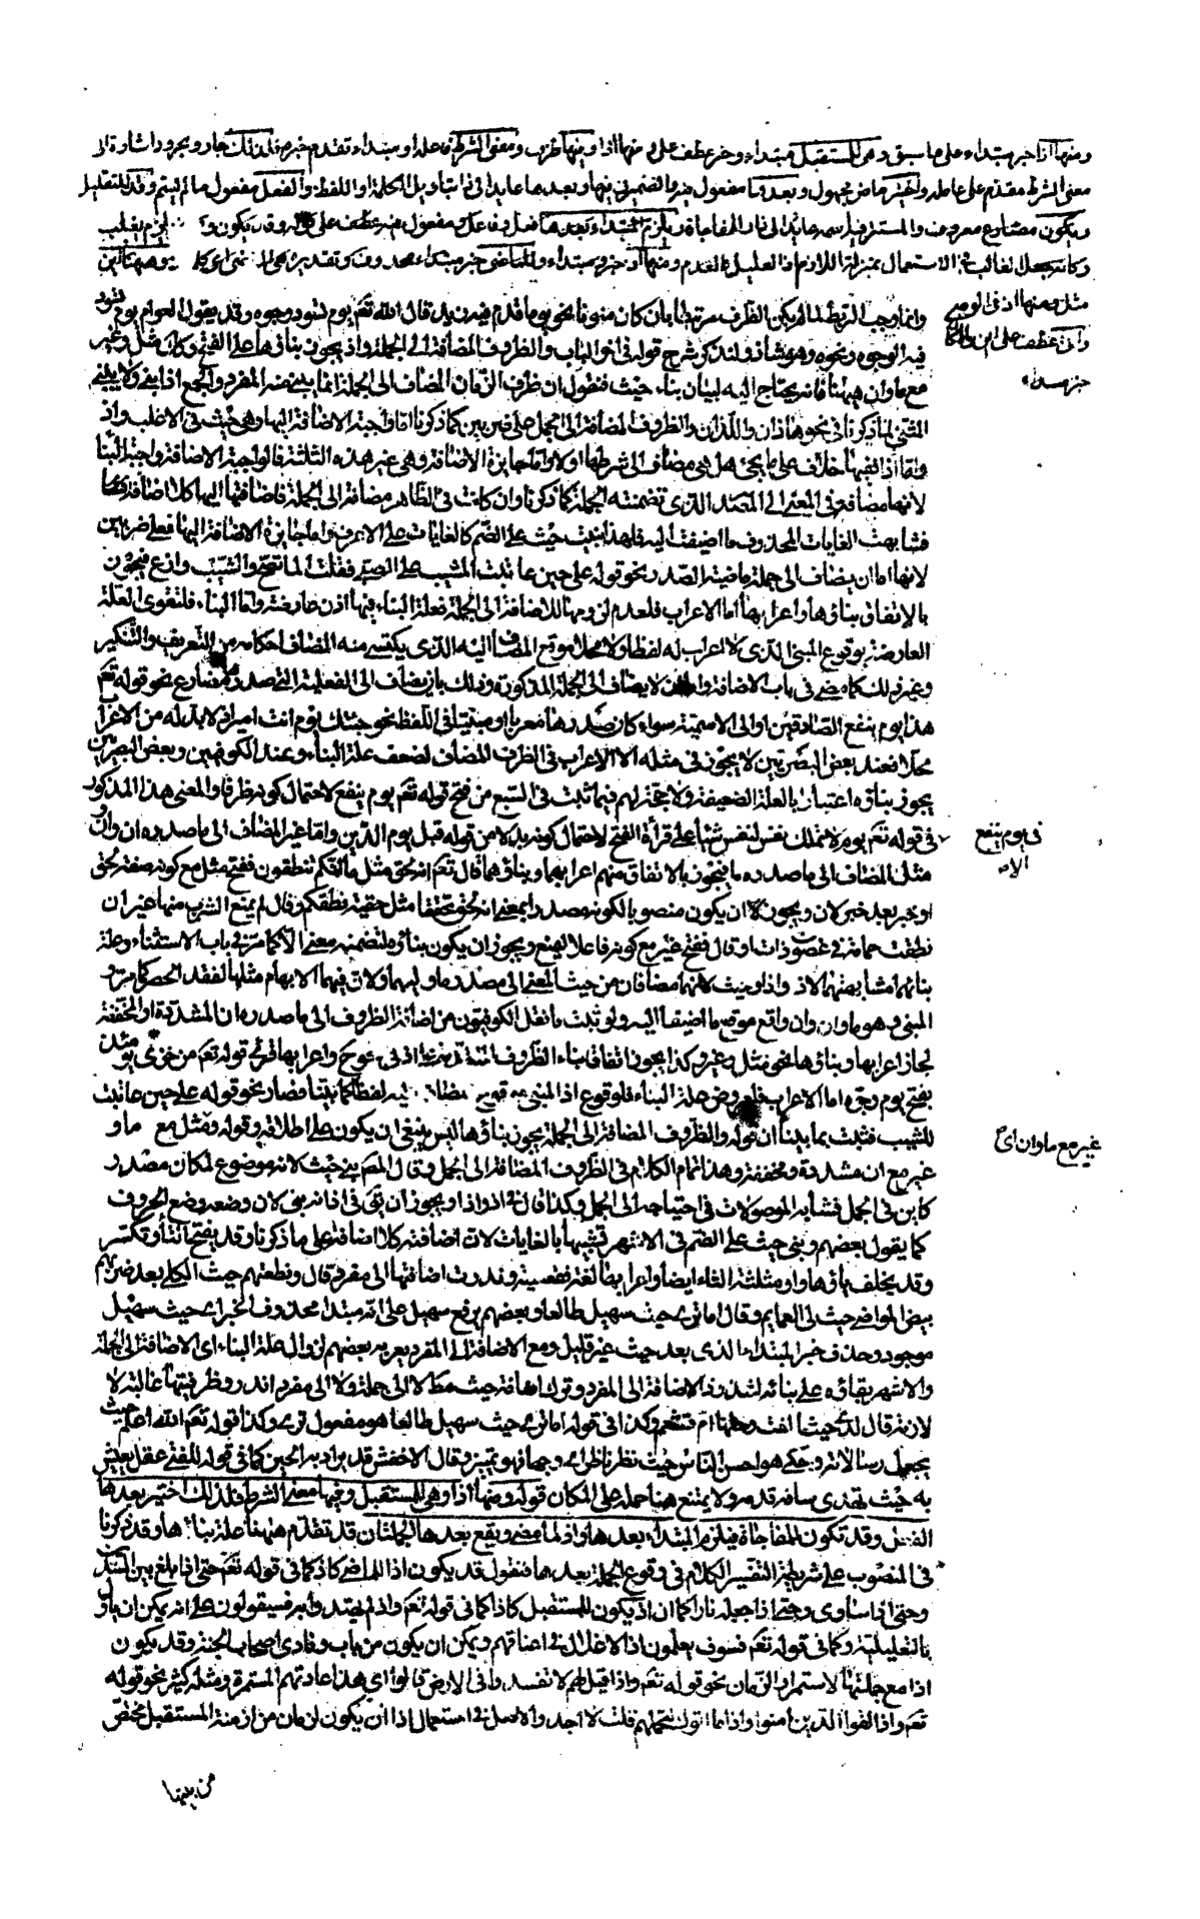 ومنها اذا خبر مبتداء على ما سبق وهى للمستقبل مبتداء وخبر عطف على ومنها اذا وفيها ظرف ومعنى الشرط فاعله او مبتداء تقدم خبره فلذلك جار ومجرور اشارة الى
معنى الشرط مقدم على عامله واختير ماض مجهول وبعدها مفعول فيه والضمير فيها وبعدها عايد الى اذا بتاويل الكلمة او اللفظ والفعل مفعول ما لم يسم وقد للتقليل
ويكون مضارع معروف والمستتر فيه اسمه عايد الى اذا وللمفاجاة فيلزم المبتداء بعدها فعل وفاعل ومفعول فيه عطف على وقد يكون
وكانه جعل الغالب فى الاستعمال بمنزلة اللازم ومنها اذ خبر ومبتداء وللماضى خبر مبتداء محذوف وتقديره هى
مثل ومنها اذ فى الوجهين
خبر مبتداء
وانما وجب الربط لما لم يكن الظرف مرتبطا بان كان منونا نحو يوما قدم فيه زيد قال الله تعم يوم تسود وجوه وقد يقول العوام يوم تسود
فيه الوجوه ونحوه وهو شاذ ولنذكر شرح قوله فى آخر الباب والظروف المضافة الى الجملة واذ يجوز بناؤها على الفتح وكذلك مثل وغير
مع ما وان ههنا فانه يحتاج اليه لبيان بناء حيث فنقول ان ظرف الزمان المضاف الى الجملة انما يبنى منه المفرد والجمع اذا بنى ولا يبنى
المثنى لما ذكرنا فى نحو هذان واللذان والظروف المضافة الى الجمل على ضربين كما ذكرنا اما واجبة الاضافة اليها وهى حيث فى الاغلب واذ
واما اذا ففيها خلاف على ما يجئ هل هى مضاف الى شرطها اولا واما جايزة الاضافة وهى غير هذه الثلثة فالواجبة الاضافة واجبة البنا
لانها مضافة فى المعنى الى المصدر الذى تضمنته الجملة كما ذكرنا وان كانت فى الظاهر مضافة الى الجملة فاضافتها اليها كلا اضافة
فشابهت الغايات المحذوف ما اضيفت اليه فلهذا بنيت حيث على الضم كالغايات على الاعرف واما جايزة الاضافة اليها فعلى ضربين
لانها اما ان يضاف الى جملة ماضية الصدر نحو قوله على حين عاتبت المشيب على الصبى فقلت الما تصح والشيب وازع فيجوز
بالاتفاق بناؤها واعرابها اما الاعراب فلعدم لزومها للاضافة الى الجملة فعلة البناء فيها اذن عارضة واما البناء فلتقوى العلة
العارضة بوقوع المبنى الذى لا اعراب له لفظا ولا محلا موقع المضاف اليه الذى يكتسى منه المضاف احكامه من التعريف والتنكير
وغير ذلك كما مضى فى باب الاضافة واما ان لا يضاف الى الجملة المذكورة وذلك بان يضاف الى الفعلية التى صدرها مضارع نحو قوله تعم
هذا يوم ينفع الصادقين او الى الاسمية سواء كان صدرها معربا او مبنيا فى اللفظ نحو جئتك يوم انت امير اذ لا بد له من الاعراب
محلا فعند بعض البصريين لا يجوز فى مثله الا الاعراب فى الظرف المضاف لضعف علة البناء وعند الكوفيين وبعض البصريين
يجوز بناؤه اعتبارا بالعلة الضعيفة ولا حجة لهم فيما ثبت فى السبع من فتح قوله تعم يوم ينفع لاحتمال كونه ظرفا والمعنى هذا المذكور
فى يوم ينفع
الاه
فى قوله تعم يوم لا تملك نفس لنفس شيئا على قراءة الفتح لاحتمال كونه بدلا من قوله قبل يوم الدين واما غير المضاف الى ما صدره ان وان
مثل المضاف الى ما صدره ما فيجوز بالاتفاق منهم اعرابهما وبناؤهما قال تعم انه لحق مثل ما انكم تنطقون ففتح مثل مع كونه صفة لحق
او خبر بعد خبر لان ويجوز لا ان يكون منصوبا لكونه مصدرا بمعنى انه لحق تحققا مثل حقية نطقكم وقال لم يمنع الشرب منها غير ان
نطقت حمامة فى غصون ذات اوقال ففتح غير مع كونه فاعلا ليمنع ويجوز ان يكون بناؤه لتضمنه معنى الا كما مر فى باب الاستثناء وعلة
بنائهما مشابهتهما لاذ واذا وحيث لانهما مضافان من حيث المعنى الى مصدر ما وليهما ولان فيهما الابهام مثلها لفقد الحصر كما مر و
المبنى وهو ما وان وان واقع موقع ما اضيفا اليه ولو ثبت ما نقل الكوفيون من اضافة الظروف الى ما صدره ان المشددة او المخففة
لجاز اعرابها وبناؤها نحو مثل وغير وكذا يجوز اتفاقا بناء الظروف المتقدمة على اذ فى نحو واعرابها قرئ قوله تعم من خزى يومئذ
بفتح يوم وجره اما الاعراب فلعروض علة البناء فلوقوع اذ المبنى موقع المضاف اليه لفظا كما بينا فصار نحو قوله على حين عاتبت
المشيب فثبت بما بينا ان قوله والظروف المضافة الى الجملة يجوز بناؤها ليس ينبغى ان يكون على اطلاقه وقوله ومثل مع ما و
غير مع ما وان اى
غير مع ان مشددة ومخففة وهذا تمام الكلام فى الظروف المضافة الى الجمل وقال المصم بنى حيث لانه موضوع لمكان مصدر
كاين فى الجمل فشابه الموصولات فى احتياجه الى الجمل وكذا قال فى اذ واذا ويجوز ان تقى فى اذ انه بنى لان وضعه وضع الحروف
كما يقول بعضهم وبنى حيث على الضم فى الاشهر تشبيها بالغايات لان اضافته كلا اضافة على ما ذكرنا وقد يفتح الثاء وتكسر
وقد يخلف ياؤها واو مثلثة الثاء ايضا واعرابها لغة فقعسية وندرت اضافتها الى مفرد قال ونطعنهم حيث الكلى بعد ضربهم
ببيض المواضى حيث لى العمايم وقال اما ترى حيث سهيل طالعا وبعضهم يرفع سهيل على انه مبتدا محذوف الخبر اى حيث سهيل
موجود وحذف خبر المبتداء الذى بعد حيث غير قليل ومع الاضافة الى المفرد يعربه بعضهم لزوال علة البناء اى الاضافة الى الجملة
والاشهر بقاؤه على بنائه لشذوذ الاضافة الى المفرد وترك اضافة حيث مطلقا لا الى جملة ولا الى مفرد اندر وظرفيتها غالبة لا
لازمة قال لدى حيث القت رحلها ام قشعم وكذا فى قوله اما ترى حيث سهيل طالعا هو مفعول ترى وكذا قوله تعم الله اعلم حيث
يجعل رسالاته وحكى هو احسن الناس حيث نظر ناظر اى وجها فهو تمييز وقال الاخفش قد يراد به الحين كما فى قوله للفتى عقل يعيش
به حيث تهدى ساقه قدمه ولا يمتنع هنا حمله على المكان قوله ومنها اذا وهى للمستقبل وفيها معنى الشرط فلذلك اختير بعدها
الفعل وقد تكون للمفاجاة فيلزم المبتداء بعدها واذ لما مضى ويقع بعدها الجملتان قد تقدم ههنا علة بنائها وقد ذكرنا
فى المنصوب على شريطة التفسير الكلام فى وقوع الجملة بعدهما فنقول قد يكون اذا للماضى كاذ كما فى قوله تعم حتى اذا بلغ بين السدين
وحتى اذا ساوى وحتى اذا جعله نارا كما ان اذ يكون للمستقبل كاذا كما فى قوله تعم واذ لم يهتدوا به فسيقولون على انه يمكن ان يأول
بالتعليلية وكما فى قوله تعم فسوف يعلمون اذ الاغلال فى اعناقهم ويمكن ان يكون من باب ونادى اصحاب الجنة وقد يكون
اذا مع جملتها لاستمرار الزمان نحو قوله تعم واذا قيل لهم لا تفسدوا فى الارض قالوا اى هذا عادتهم المستمرة ومثله كثير نحو قوله
تعم واذا لقوا الذين امنوا واذا ما اتوك لتحملهم قلت لا اجد والاصل فى استعمال اذا ان يكون لزمان من ازمنة المستقبل مختص
من بينها